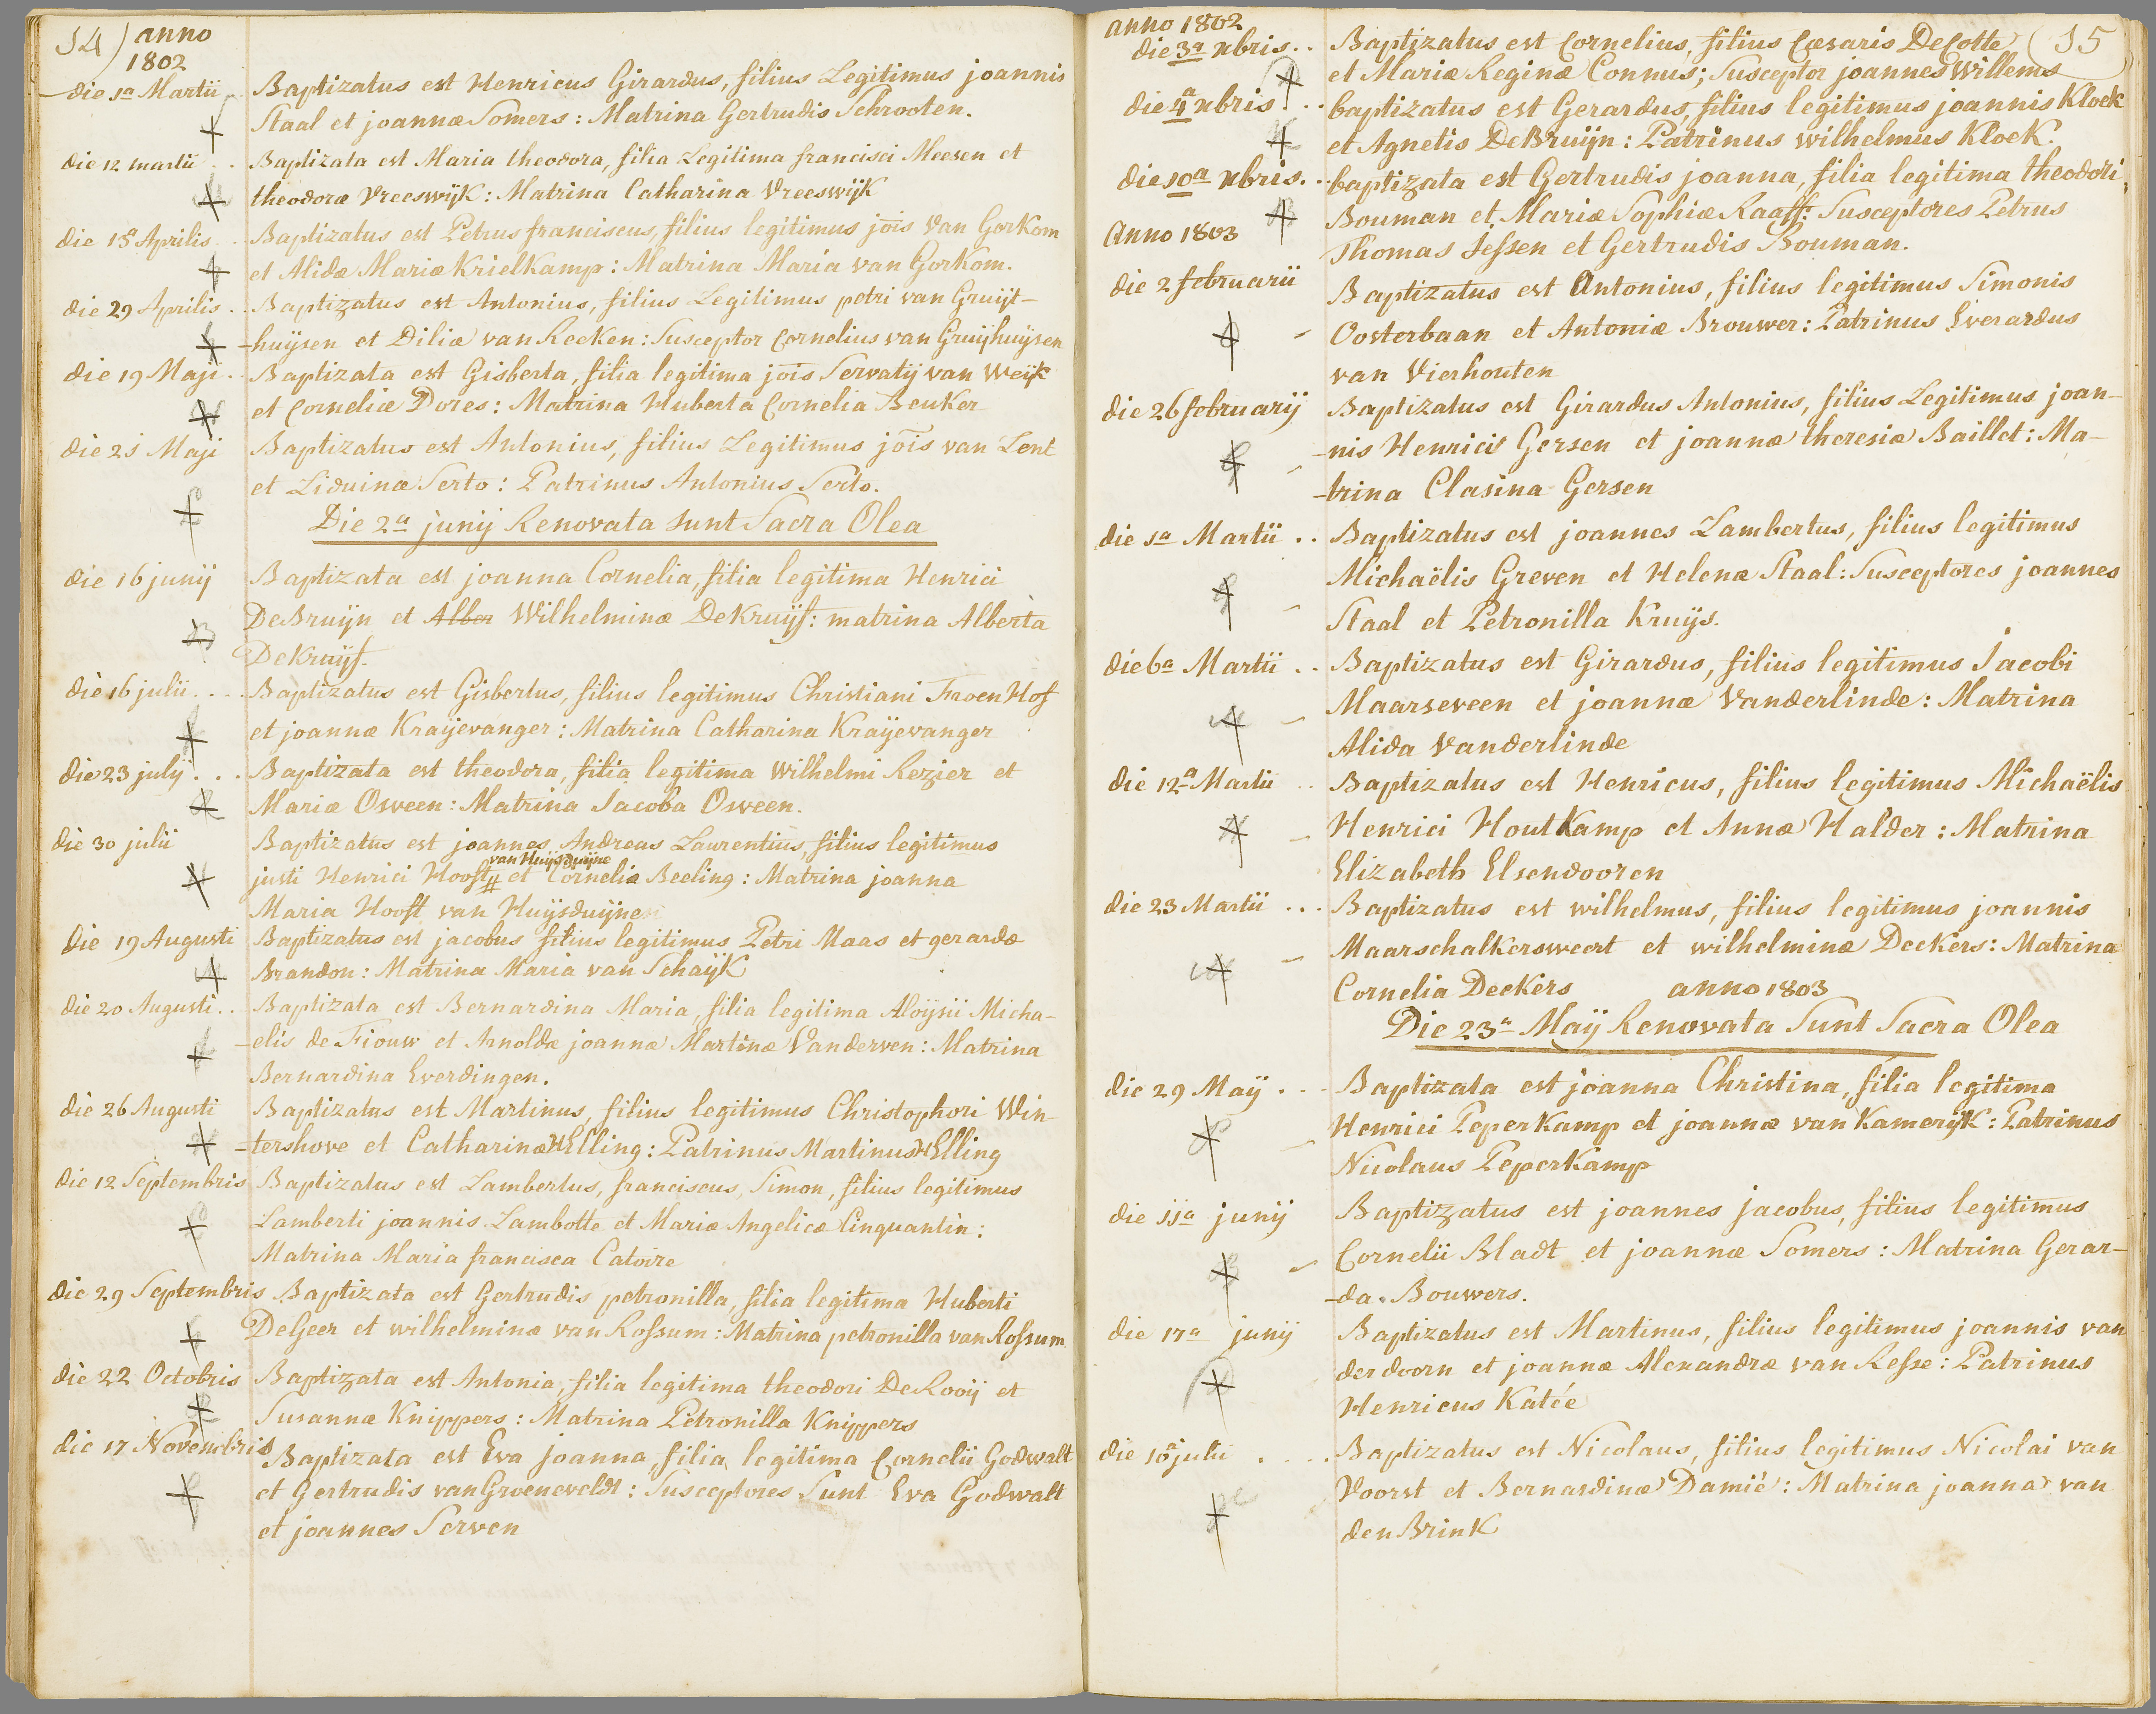 14) anno
1802
die 1a Martii Baptizatus est Henricus Girardus, filius Legitimus joannis
Staal et joannæ Somers: Matrina Gertrudis Schrooten.
die 12 martii .. Baptizata est Maria theodora, filia Legitima francisci Meesen et
theodoræ Vreeswijk: Matrina Catharina Vreeswijk
die 15 Aprilis .. Baptizatus est Petrus franciscus, filius legitimus jois Van Gorkom
et Alidæ Mariæ Krielkamp: Matrina Maria van Gorkom.
die 29 Aprilis .. Baptizatus est Antonius, filius Legitimus petri van Gruijt-
-huijsen et Diliæ van Reeken: Susceptor Cornelius van Gruijhuijsen
die 19 Maji .. Baptizata est Gisberta, filia legitima jois Servatij van Weijk
et Corneliæ Dores: Matrina Huberta Cornelia Beuker
die 21 Maji Baptizatus est Antonius, filius Legitimus jois van Lent
et Liduinæ Serto: Patrinus Antonius Serto.
Die 2a junij Renovata sunt Sacra Olea
die 16 junij Baptizata est joanna Cornelia, filia legitima Henrici
DeBruijn et Alber Wilhelminæ DeKruijf: matrina Alberta
DeKruijf.
die 16 julii .... Baptizatus est Gisbertus, filius legitimus Christiani FroenHof
et joannæ Kraijevanger: Matrina Catharina Kraijevanger
die 23 julij ... Baptizata est theodora, filia legitima Wilhelmi Rezier et
Mariæ Osveen: Matrina Jacoba Osveen.
die 30 julii Baptizatus est joannes Andreas Laurentius, filius legitimus
van Huijsduijne
justi Henrici Hooft # et Cornelia Beeling: Matrina joanna
Maria Hooft van Huijsduijnen
die 19 Augusti Baptizatus est jacobus filius legitimus Petri Maas et gerardæ
Brandon: Matrina Maria van Schaijk
die 20 Augusti .. Baptizata est Bernardina Maria, filia legitima Aloijsii Micha-
-elis de Fiouw et Arnoldæ joannæ Martinæ Vanderven: Matrina
Bernardina Everdingen.
die 26 Augusti Baptizatus est Martinus, filius legitimus Christophori Win-
-tershove et Catharinæ HElling: Patrinus Martinus HElling
die 12 Septembris Baptizatus est Lambertus, franciscus, Simon, filius legitimus
Lamberti joannis Lambotte et Mariæ Angelicæ Cinquantin:
Matrina Maria francisca Catoire
die 29 Septembris Baptizata est Gertrudis petronilla, filia legitima Huberti
DeGeer et wilhelminæ van Rossum: Matrina petronilla van Rossum
die 22 Octobris Baptizata est Antonia, filia legitima theodori DeRooij et
Susannæ Knippers: Matrina Petronilla Knippers
die 17 Novembris Baptizata est Eva joanna, filia legitima Cornelii Godwalt
et Gertrudis van Groeneveldt: Susceptores Sunt Eva Godwalt
et joannes Serven
anno 1802 (15
die 3a xbris .. Baptizatus est Cornelius, filius Cæsaris DeCotte
et Mariæ Reginæ Connus; Susceptor joannes Willems
die 4a xbris .. baptizatus est Gerardus, filius legitimus joannis Kloek
et Agnetis DeBruijn: Patrinus wilhelmus Kloek.
die 10a xbris .. baptizata est Gertrudis joanna, filia legitima theodori
Bouman et Mariæ Sophiæ Raaff: Susceptores Petrus
Anno 1803
Thomas Jessen et Gertrudis Bouman.
die 2 februarii Baptizatus est Antonius, filius legitimus Simonis
Oosterbaan et Antoniæ Brouwer: Patrinus Everardus
van Vierhouten
die 26 februarij Baptizatus est Girardus Antonius, filius Legitimus joan-
-nis Henrici Gersen et joannæ theresiæ Baillet: Ma-
-trina Clasina Gersen
die 1a Martii .. Baptizatus est joannes Lambertus, filius legitimus
Michaëlis Greven et Helenæ Staal: Susceptores joannes
Staal et Petronilla Kruijs.
die 6a Martii .. Baptizatus est Girardus, filius legitimus Jacobi
Maarseveen et joannæ Vanderlinde: Matrina
Alida Vanderlinde
die 12a Martii .. Baptizatus est Henricus, filius legitimus Michaëlis
Henrici HoutKamp et Annæ Halder: Matrina
Elizabeth Elsendooren
die 23 Martii ... Baptizatus est wilhelmus, filius legitimus joannis
Maarschalkersweert et wilhelminæ Deckers: Matrina
Cornelia Deckers anno 1803
Die 23a Maij Renovata Sunt Sacra Olea
die 29 Maij ... Baptizata est joanna Christina, filia legitima
Henrici PeperKamp et joannæ van Kamerijk: Patrinus
Nicolaus PeperKamp
die 11a junij Baptizatus est joannes jacobus, filius legitimus
Cornelii Bladt et joannæ Somers: Matrina Gerar-
-da Bouwers.
die 17a junij Baptizatus est Martinus, filius legitimus joannis van
der doorn et joannæ Alexandræ van Resse: Patrinus
Henricus Katée
die 10a julii .... Baptizatus est Nicolaus, filius legitimus Nicolai van
Voorst et Bernardinæ Damié: Matrina joanna van
den Brink